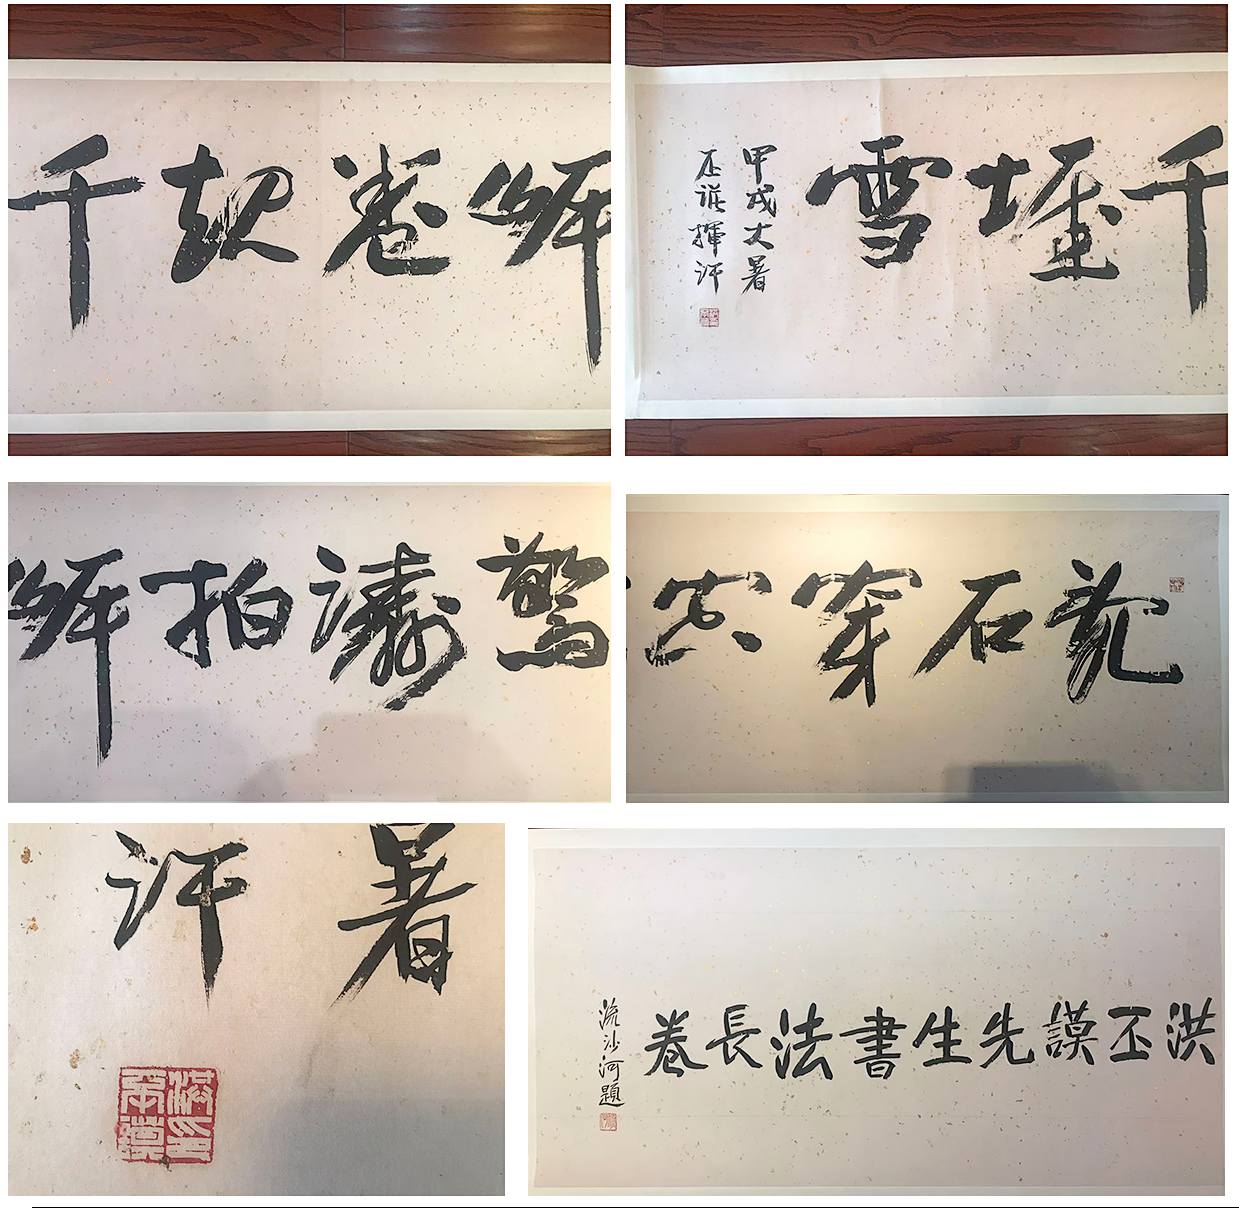 岸卷起千
千堆雪
甲戌大暑
丕謨揮汗
驚濤拍岸
乱石穿空
暑
汗
洪丕謨先生書法長卷
流沙河題